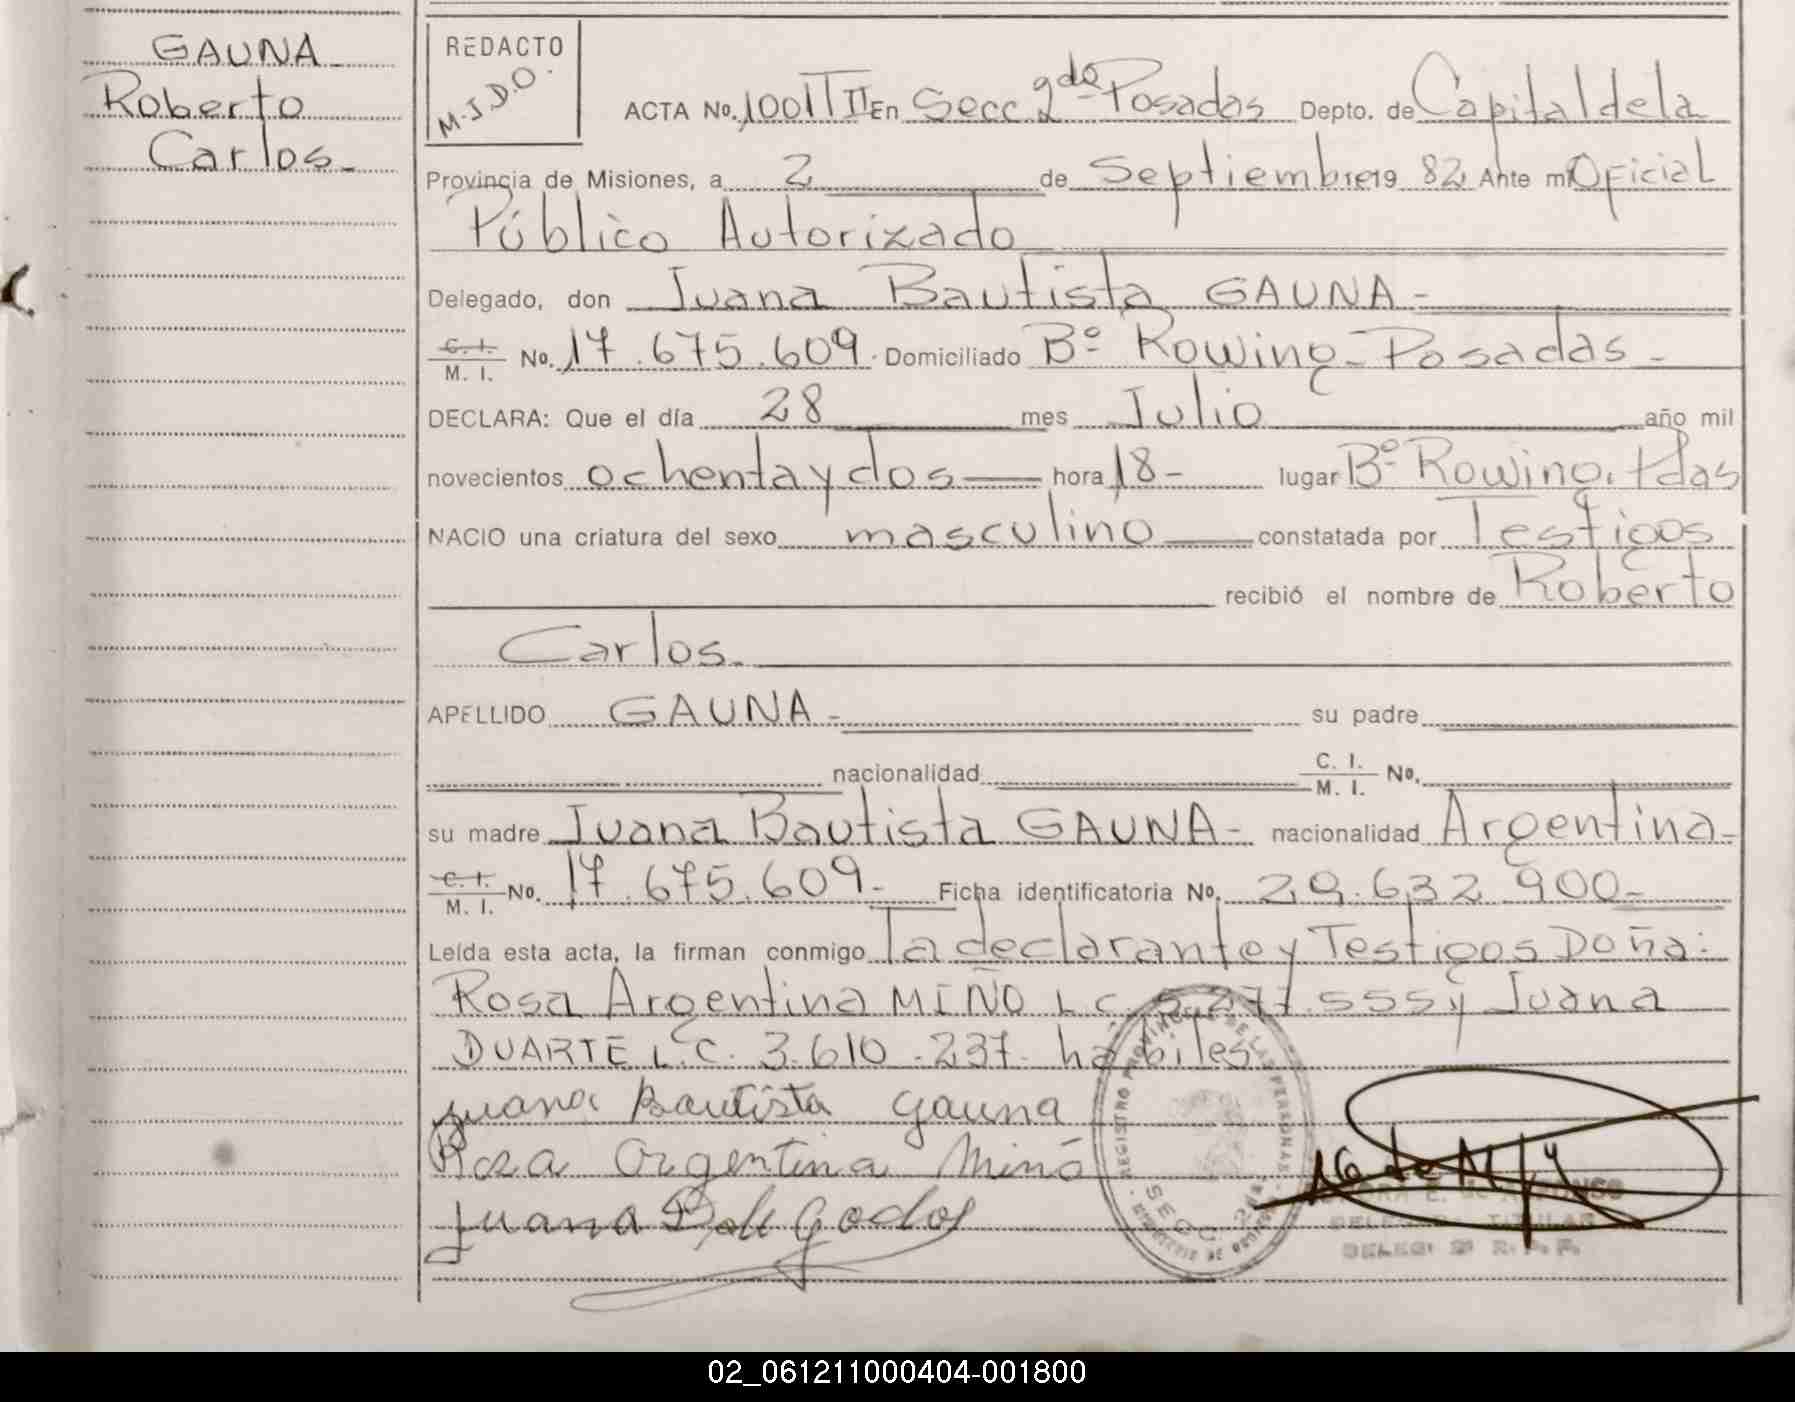 GAUNA
Roberto
Carlos
REDACTO
M.J.D.O.
ACTA No. 1001 TII En Secc 2da Posadas Depto. de Capital de la
Provincia de Misiones, a 2 de Septiembre 19 82 Ante mi Oficial
Público Autorizado
Delegado, don Juana Bautista GAUNA -
C. I. / M. I. No. 17.675.609 Domiciliado Bº Rowing - Posadas -
DECLARA: Que el día 28 mes Julio año mil
novecientos ochenta y dos hora 18 - lugar Bº Rowing. Pdas
NACIO una criatura del sexo masculino constatada por Testigos
recibió el nombre de Roberto
Carlos.
APELLIDO GAUNA - su padre
nacionalidad C. I. / M. I. No.
su madre Juana Bautista GAUNA - nacionalidad Argentina -
C. I. / M. I. No. 17.675.609 - Ficha identificatoria No. 29.632.900 -
Leída esta acta, la firman conmigo la declarante y Testigos Doña:
Rosa Argentina MIÑO L.C. 277.555 y Juana
DUARTE L.C. 3.610.237. hábiles
Juana Bautista Gauna
Rosa Argentina Miño
Juana
REGISTRO PROVINCIAL DE LAS PERSONAS
SECC. 2
DELEGADA TITULAR
DELEG. 2ª R.P.P.
02_061211000404-001800